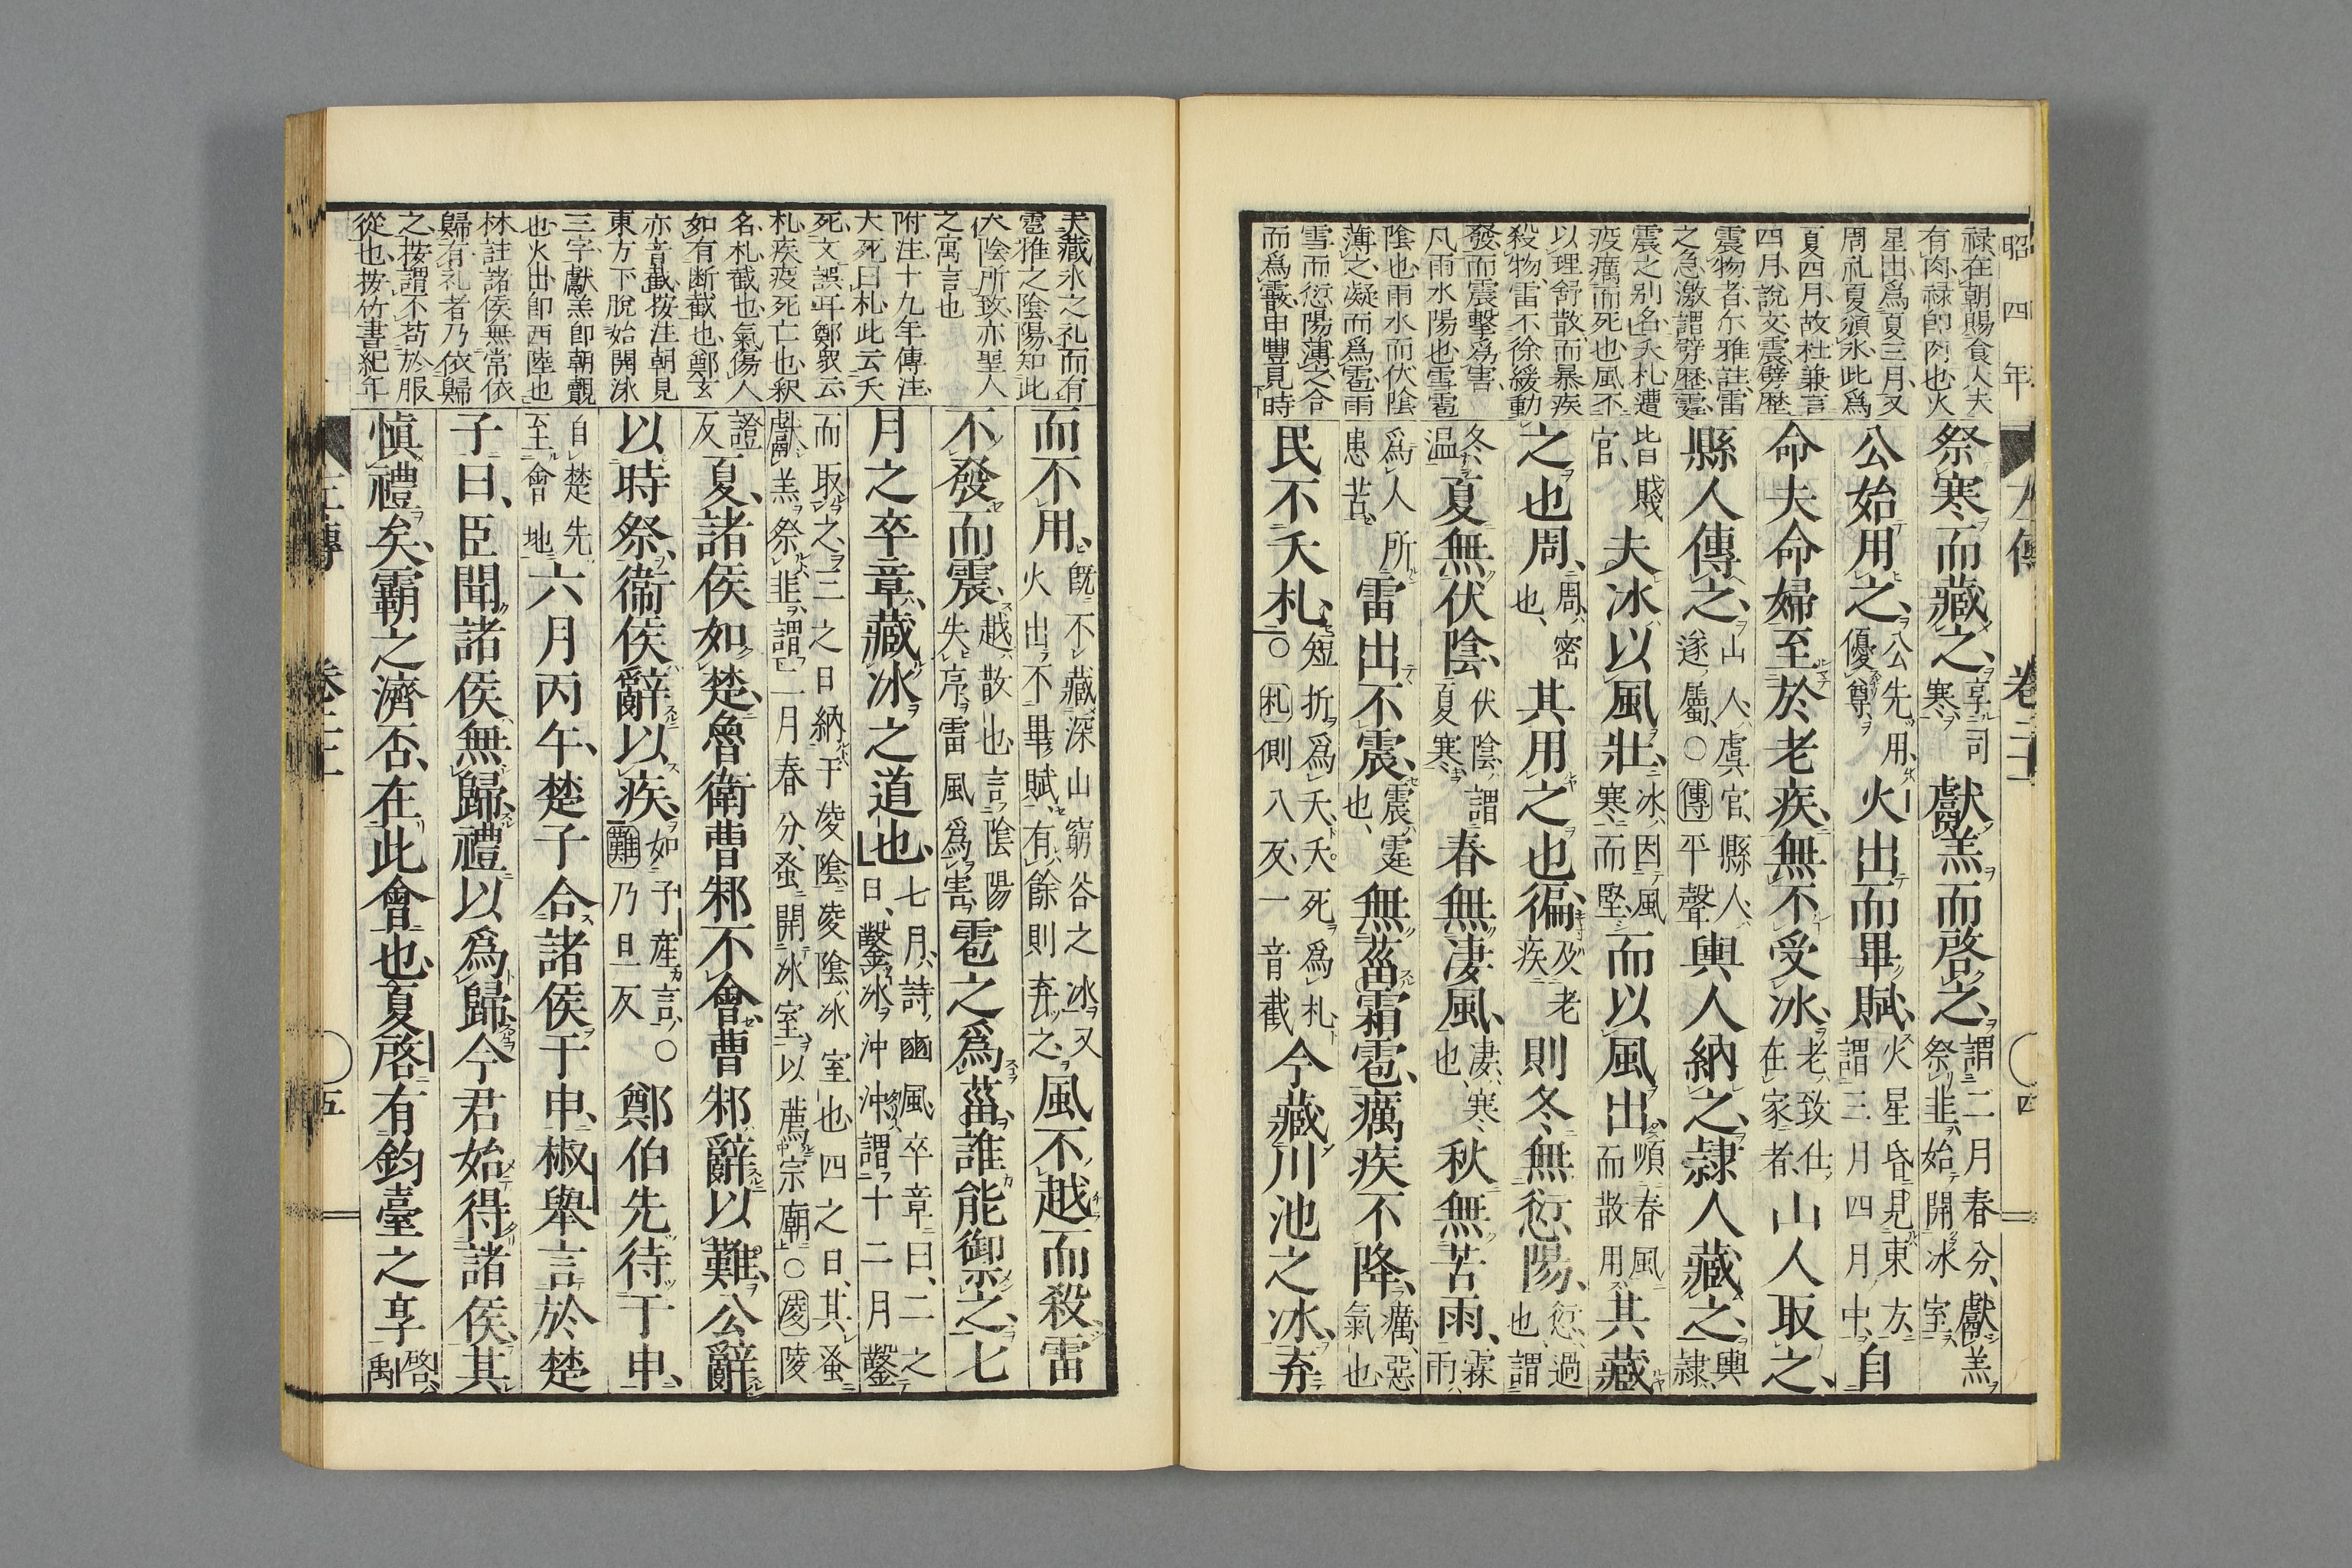 昭四年
左傳
卷二
四
祿在朝賜食人夫
有肉祿即肉也火
星出爲夏三月又
周礼夏頒氷此爲
夏四月故杜兼言
四月說文震劈歷
震物者尓雅註雷
之急激謂劈歷霆
震之别名夭札遭
疫癘而死也風不
以理舒散而暴疾
殺物雷不徐緩動
發而震擊爲害
凡雨水陽也雪雹
陰也雨水而伏陰
薄之凝而爲雹雨
雪而愆陽薄之合
而爲霰申豐見時下
祭寒而藏之享司寒獻羔而啓之謂二月春分獻羔祭韭始開冰室
公始用之公先用優尊火出而畢賦火星昏見東方謂三月四月中自
命夫命婦至於老疾無不受冰老致仕在家者山人取之
縣人傳之山人虞官縣人遂屬〇傳平聲輿人納之隸人藏之輿隸
皆賤官夫冰以風壯冰因風寒而堅而以風出順春風而散用其藏
之也周周密也其用之也徧及老疾則冬無愆陽愆過也謂
冬温夏無伏陰伏陰謂夏寒春無凄風凄寒也秋無苦雨霖雨
爲人所患苦雷出不震震霆也無菑霜雹癘疾不降癘惡氣也
民不夭札短折爲夭夭死爲札〇札側八反一音截今藏川池之冰弃
夫藏氷之礼而有
雹雅之陰陽知此
人陰所致亦聖人
之寓言也
附注十九年傳注
大死曰札此云夭
死文誤耳鄭衆云
札疾疫死亡也釈
名札截也氣傷人
如有断截也鄭玄
亦音截按注朝見
東方下脫始開氷
三字獻羔即朝覿
也火出卽西陸也
林註諸侯無常依
歸有礼者乃依歸
之按謂不苟於服
從也按竹書紀年
而不用既不藏深山窮谷之冰又火出不畢賦有餘則弃之風不越而殺雷
不發而震越散也言陰陽失序雷風爲害雹之爲菑誰能御之七
月之卒章藏冰之道也七月詩豳風卒章曰二之日鑿冰沖沖謂十二月鑿
而取之三之日納于凌陰凌陰冰室也四之日其蚤獻羔祭韭謂二月春分蚤開冰室以薦宗廟〇凌陵
證反夏諸侯如楚魯衛曹邾不會曹邾辭以難公辭
以時祭衞侯辭以疾如子產言〇難乃旦反鄭伯先待于申
自楚先至會地六月丙午楚子合諸侯于申椒舉言於楚
子曰臣聞諸侯無歸禮以爲歸今君始得諸侯其
慎禮矣霸之濟否在此會也夏啓有鈞臺之享啓禹
左傳
卷二
五